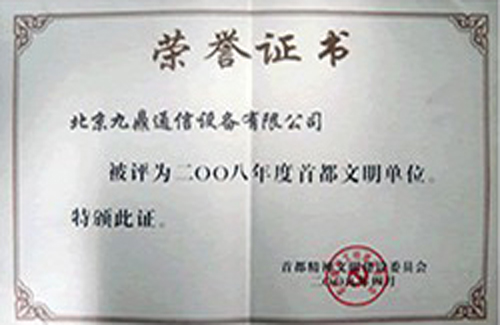 荣誉证书
北京九鼎通信设备有限公司
被评为二〇〇八年度首都文明单位。
特颁此证。
首都精神文明建设委员会
二〇〇九年四月